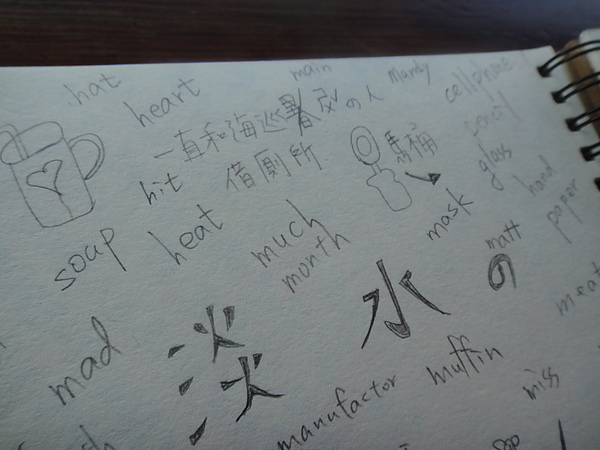 hat
heart
main
Mandy
cellphone
一直和海巡署
の人
pencil
hit
借廁所
馬桶
glass
hand
soup
heat
much
month
mask
matt
paper
の
meat
淡
水
mad
manufactor
muffin
miss